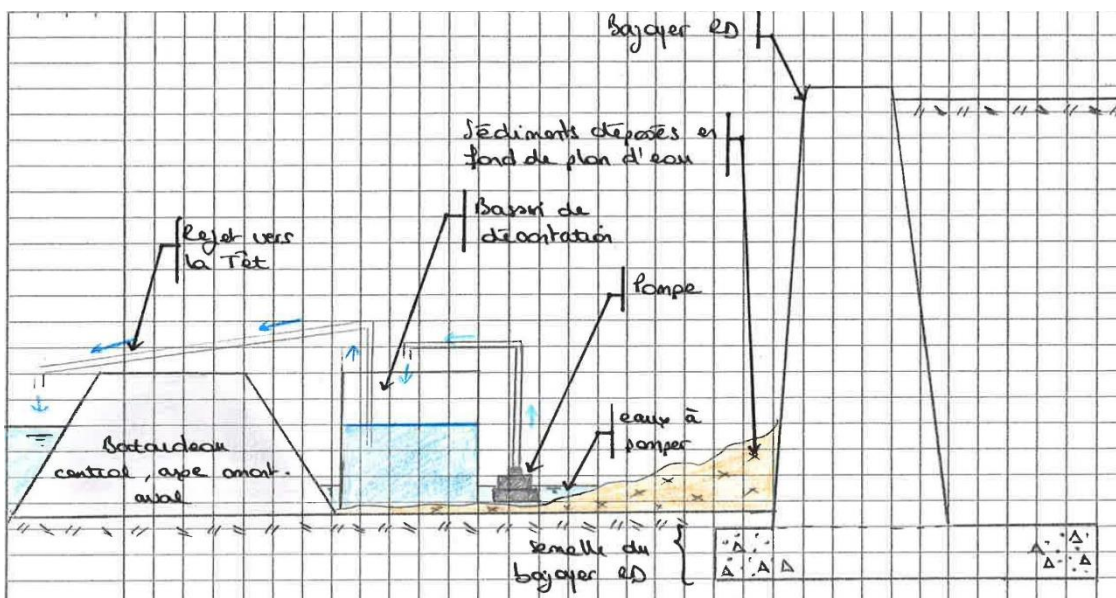 Bajoyer RD
Sédiments déposés en
fond de plan d'eau
Bassin de
décantation
Rejet vers
la Têt
Pompe
eaux à
pomper
Batardeau
central, axe amont-
aval
semelle du
bajoyer RD